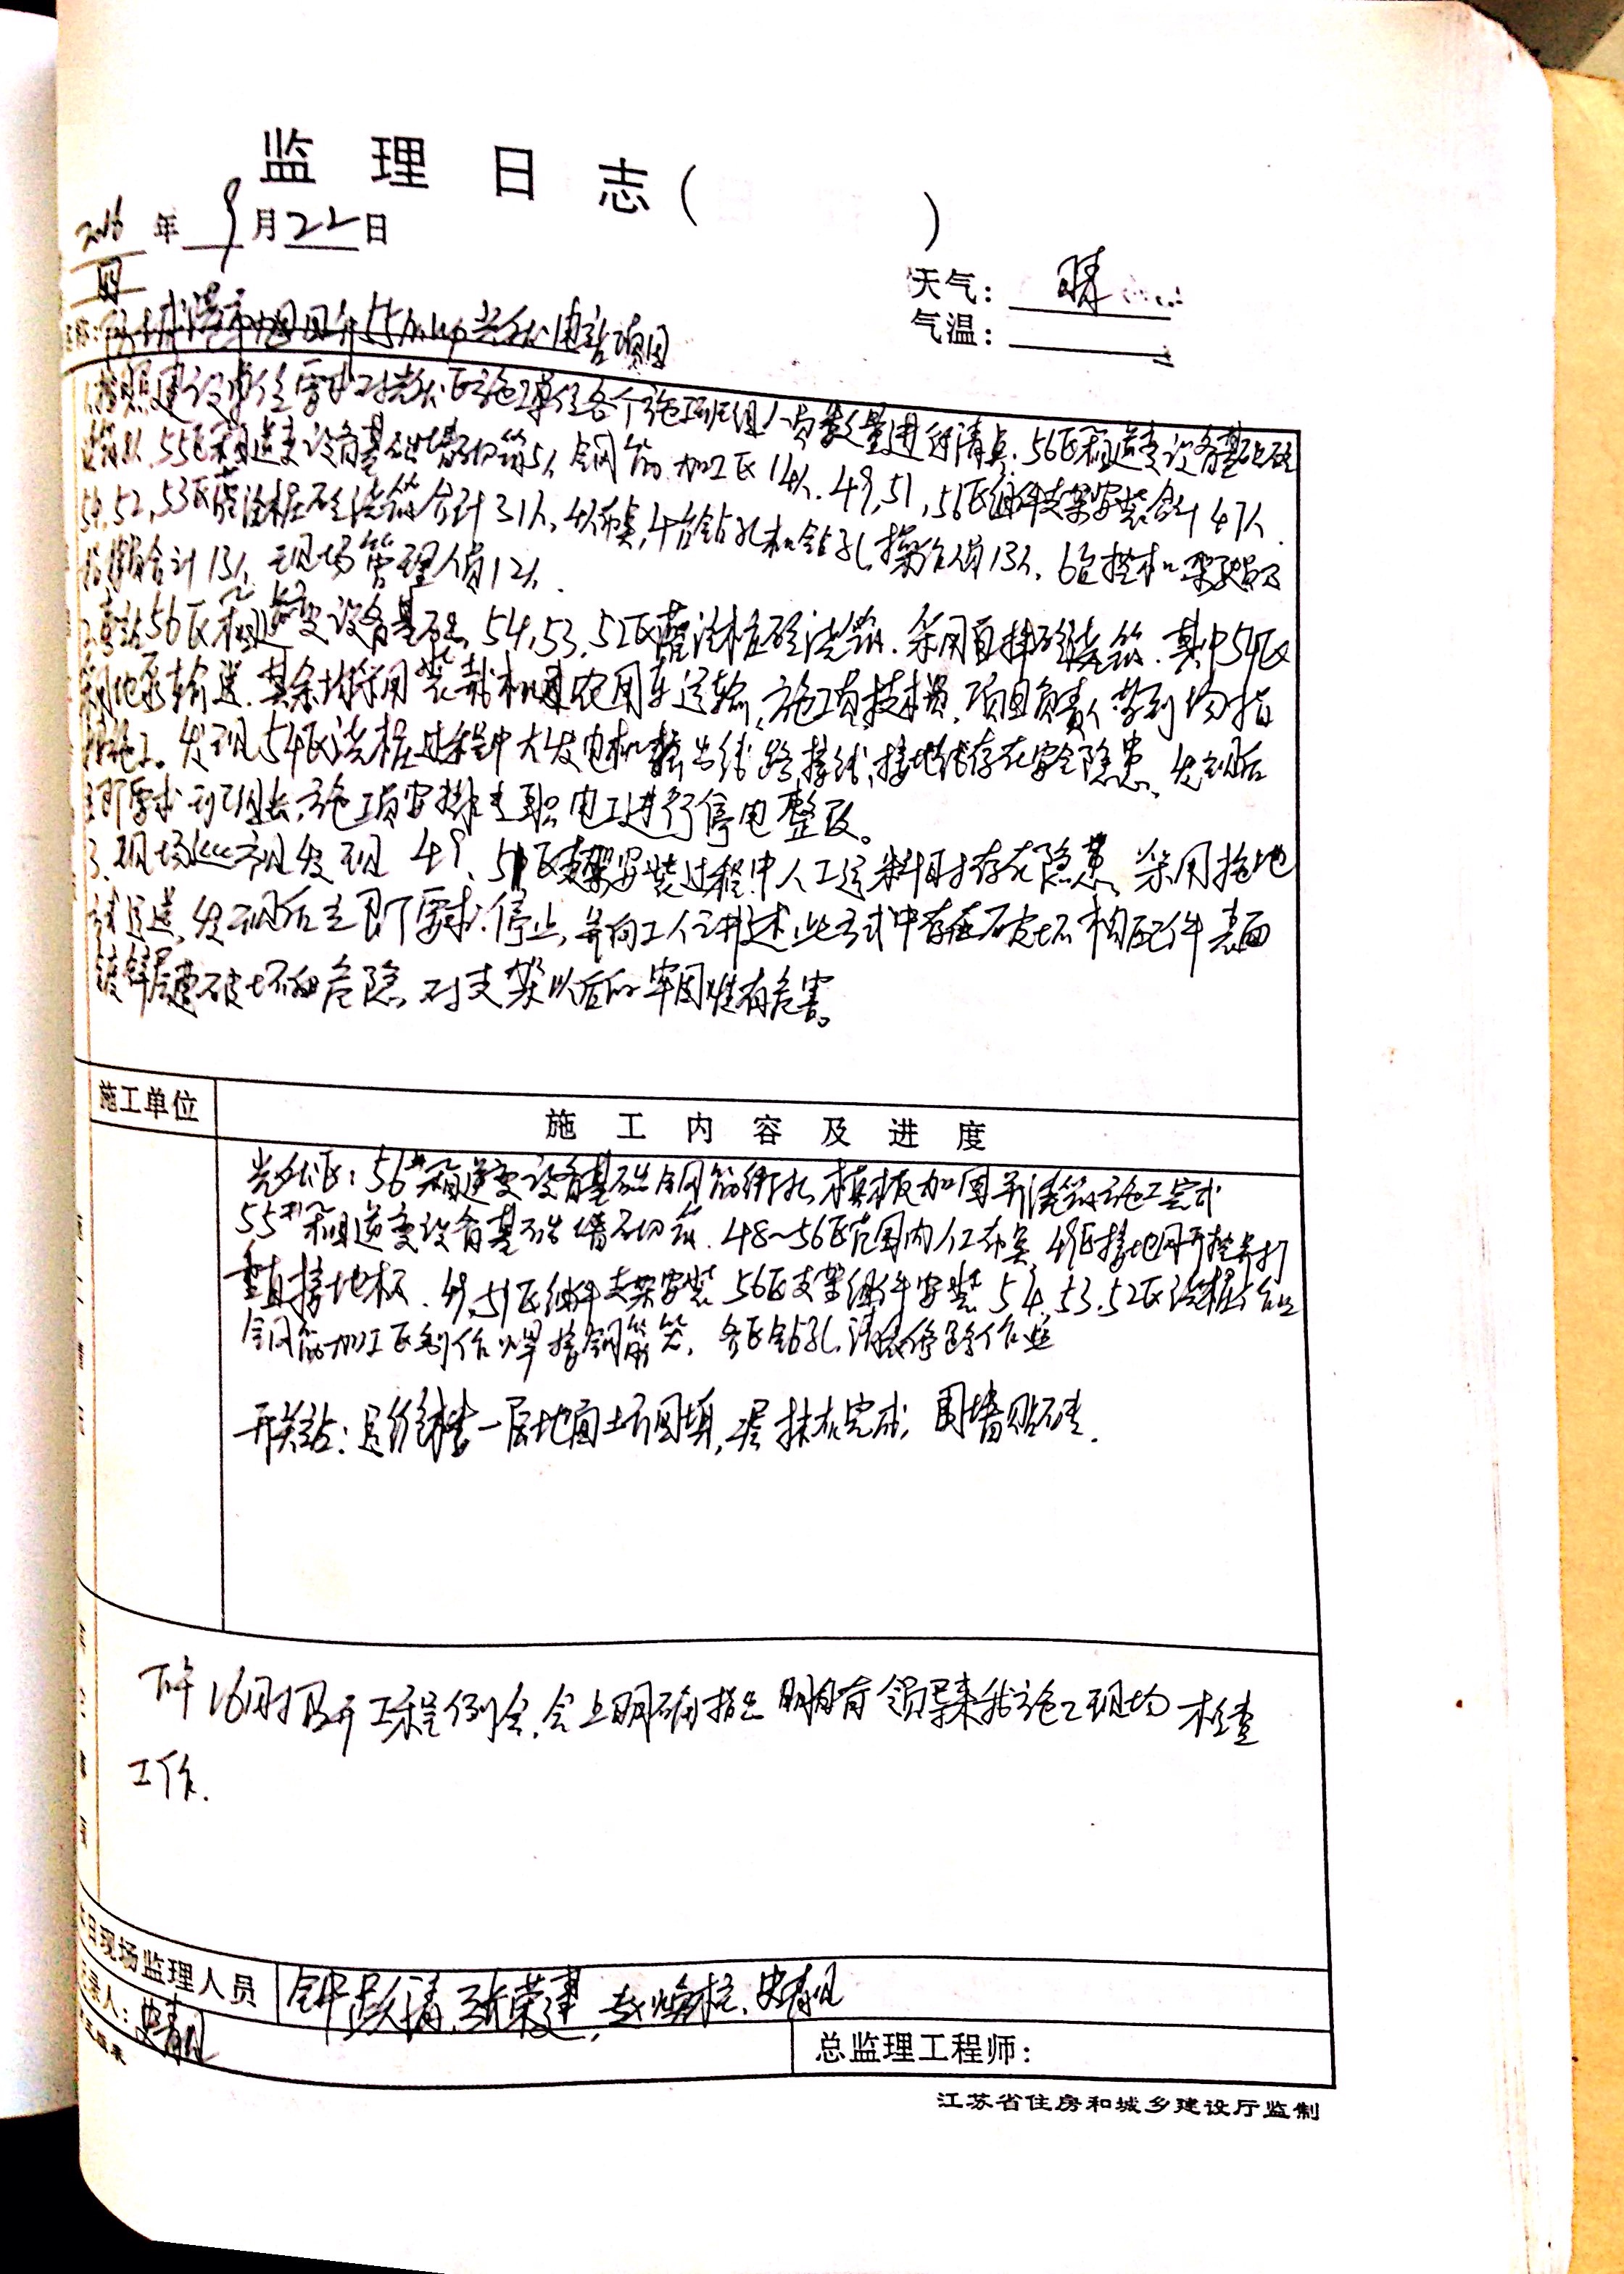 监 理 日 志（ ）
2016 年 9 月 22 日
四
天气： 晴
气温：
55MWp光伏电站项目
按照建设单位要求对光伏区施工单位各个施工班组人员数量进行清点. 56区箱逆变设备基础砼
55区箱逆变设备基础墙砌筑5人 钢筋加工区14人. 49, 51, 56区组件支架安装合计47人.
54, 52, 53区灌注桩砼浇筑合计31人, 4人布桌, 4台钻孔机钻孔操作人员13人, 6台挖机驾驶员及
合计13人 现场管理人员12人.
56区箱逆变设备基础, 54, 53, 52区灌注桩砼浇筑. 采用自拌砼浇筑. 其中54区
利地泵输送. 其余均采用装载机及农用车运输, 施工员技术员, 项目负责人等到场指
挥施工。发现54区浇桩过程中大发电机输出线路接线, 接地线存在安全隐患, 发现后
立即要求班组长, 施工员安排专职电工进行停电整改。
3. 现场巡视发现 49、51区支架安装过程中人工运料时存在隐患, 采用拖地
式运送, 发现后立即要求停止, 并向工人讲述此方式中存在破坏构配件表面
镀锌层破坏的危险, 对支架以后的牢固性有危害。
施工单位
施 工 内 容 及 进 度
光伏区：56#箱逆变设备基础钢筋绑扎, 模板加固并浇筑施工完成
55#箱逆变设备基础墙砌筑. 48~56区范围内人工布桌, 49区接地网开挖并打
垂直接地极. 49, 51区组件支架安装 56区支架组件安装 54, 53, 52区浇桩
钢筋加工区制作焊接钢筋笼, 各区钻孔, 清表修路作业
开关站：一层地面土方回填, 抹灰完成; 围墙贴砖.
下午16时召开工程例会, 会上明确指出明日有领导来我施工现场检查
工作.
日现场监理人员
钟彭清, 张荣建, 赵焕桂, 史青见
录人： 史青见
总监理工程师：
江苏省住房和城乡建设厅监制